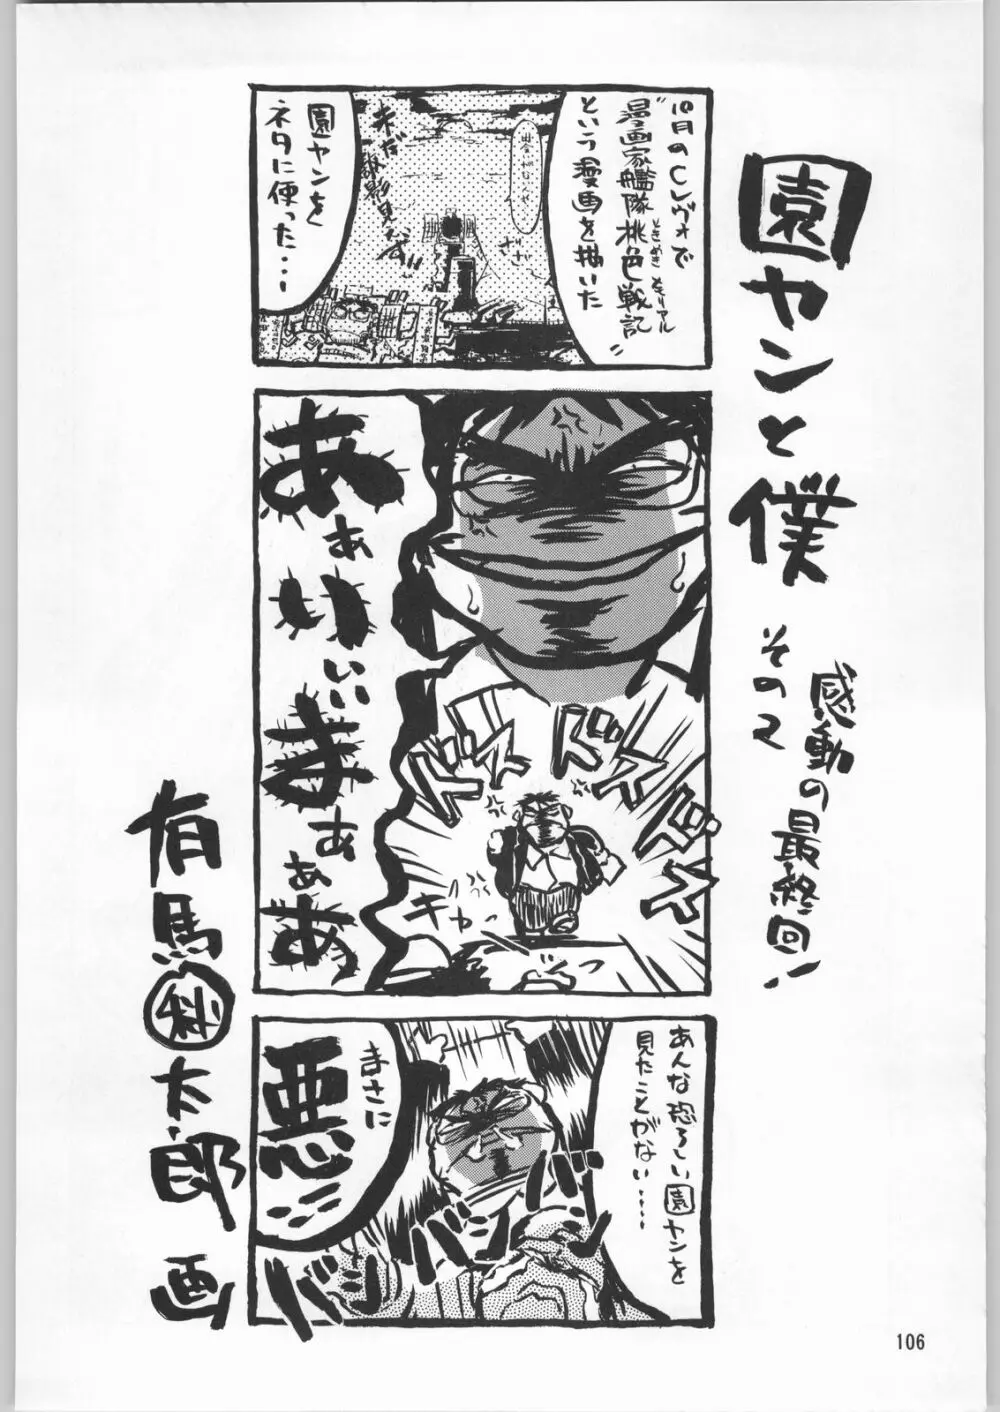 園ヤンと僕
その2
感動の最終回!
10月のCレヴォで
"漫画家艦隊桃色戦記"
ときめきメモリアル
という漫画を描いた
園ヤンを
ネタに使った・・・
ざざ
あぁいぃまぁぁあ
ドスドスドス
あんな恐ろしい園ヤンを
見たことがない・・・・
まさに
悪
バンバンバン
有馬㊙太郎 画
106